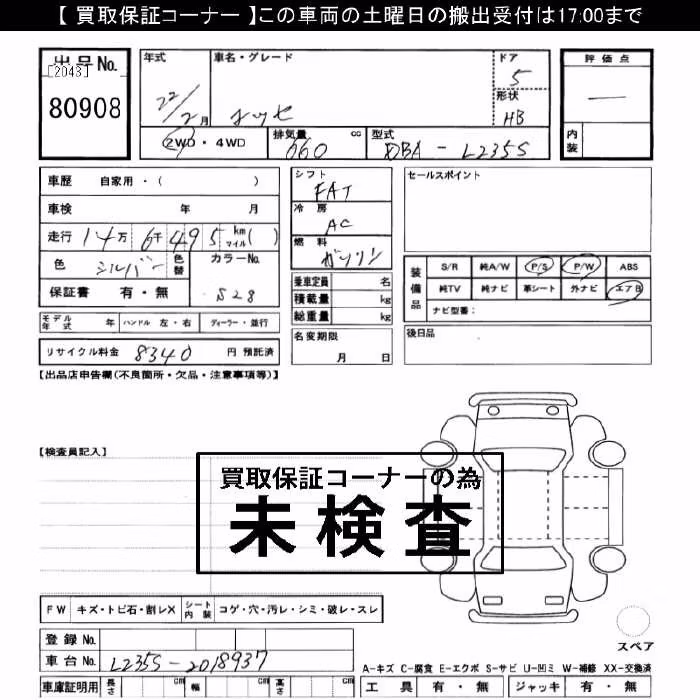 【 買取保証コーナー 】この車両の土曜日の搬出受付は17:00まで
出品No.
[2043]
80908
年式
22/2月
車名・グレード
エッセ
ドア
5
形状
HB
評価点
—
内装
2WD・4WD
排気量 660 cc
型式 DBA-L235S
車歴 自家用・( )
車検 年 月
走行 14万 6千 495 km マイル ( )
色 シルバー 色替
カラーNo. S28
保証書 有・無
モデル年式 年 ハンドル 左・右 ディーラー・並行
リサイクル料金 8340 円 預託済
シフト
FAT
冷房
AC
燃料
ガソリン
乗車定員 名
積載量 kg
総重量 kg
名変期限
月 日
セールスポイント
装備品
S/R 純A/W P/S P/W ABS
純TV 純ナビ 革シート 外ナビ エアB
ナビ型番:
後日品
【出品店申告欄(不良箇所・欠品・注意事項等)】
【検査員記入】
買取保証コーナーの為
未検査
FW キズ・トビ石・割レX シート内装 コゲ・穴・汚レ・シミ・破レ・スレ
登録No.
車台No. L235S-2018937
車庫証明用 長さ cm 幅 cm 高さ cm
スペア
A-キズ C-腐食 E-エクボ S-サビ U-凹ミ W-補修 XX-交換済
工具 有・無 ジャッキ 有・無